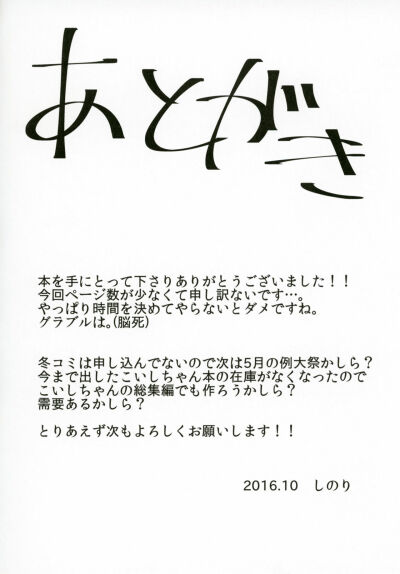 あとがき
本を手にとって下さりありがとうございました！！
今回ページ数が少なくて申し訳ないです…。
やっぱり時間を決めてやらないとダメですね。
グラブルは。(脳死)
冬コミは申し込んでないので次は5月の例大祭かしら？
今まで出したこいしちゃん本の在庫がなくなったので
こいしちゃんの総集編でも作ろうかしら？
需要あるかしら？
とりあえず次もよろしくお願いします！！
2016.10　しのり